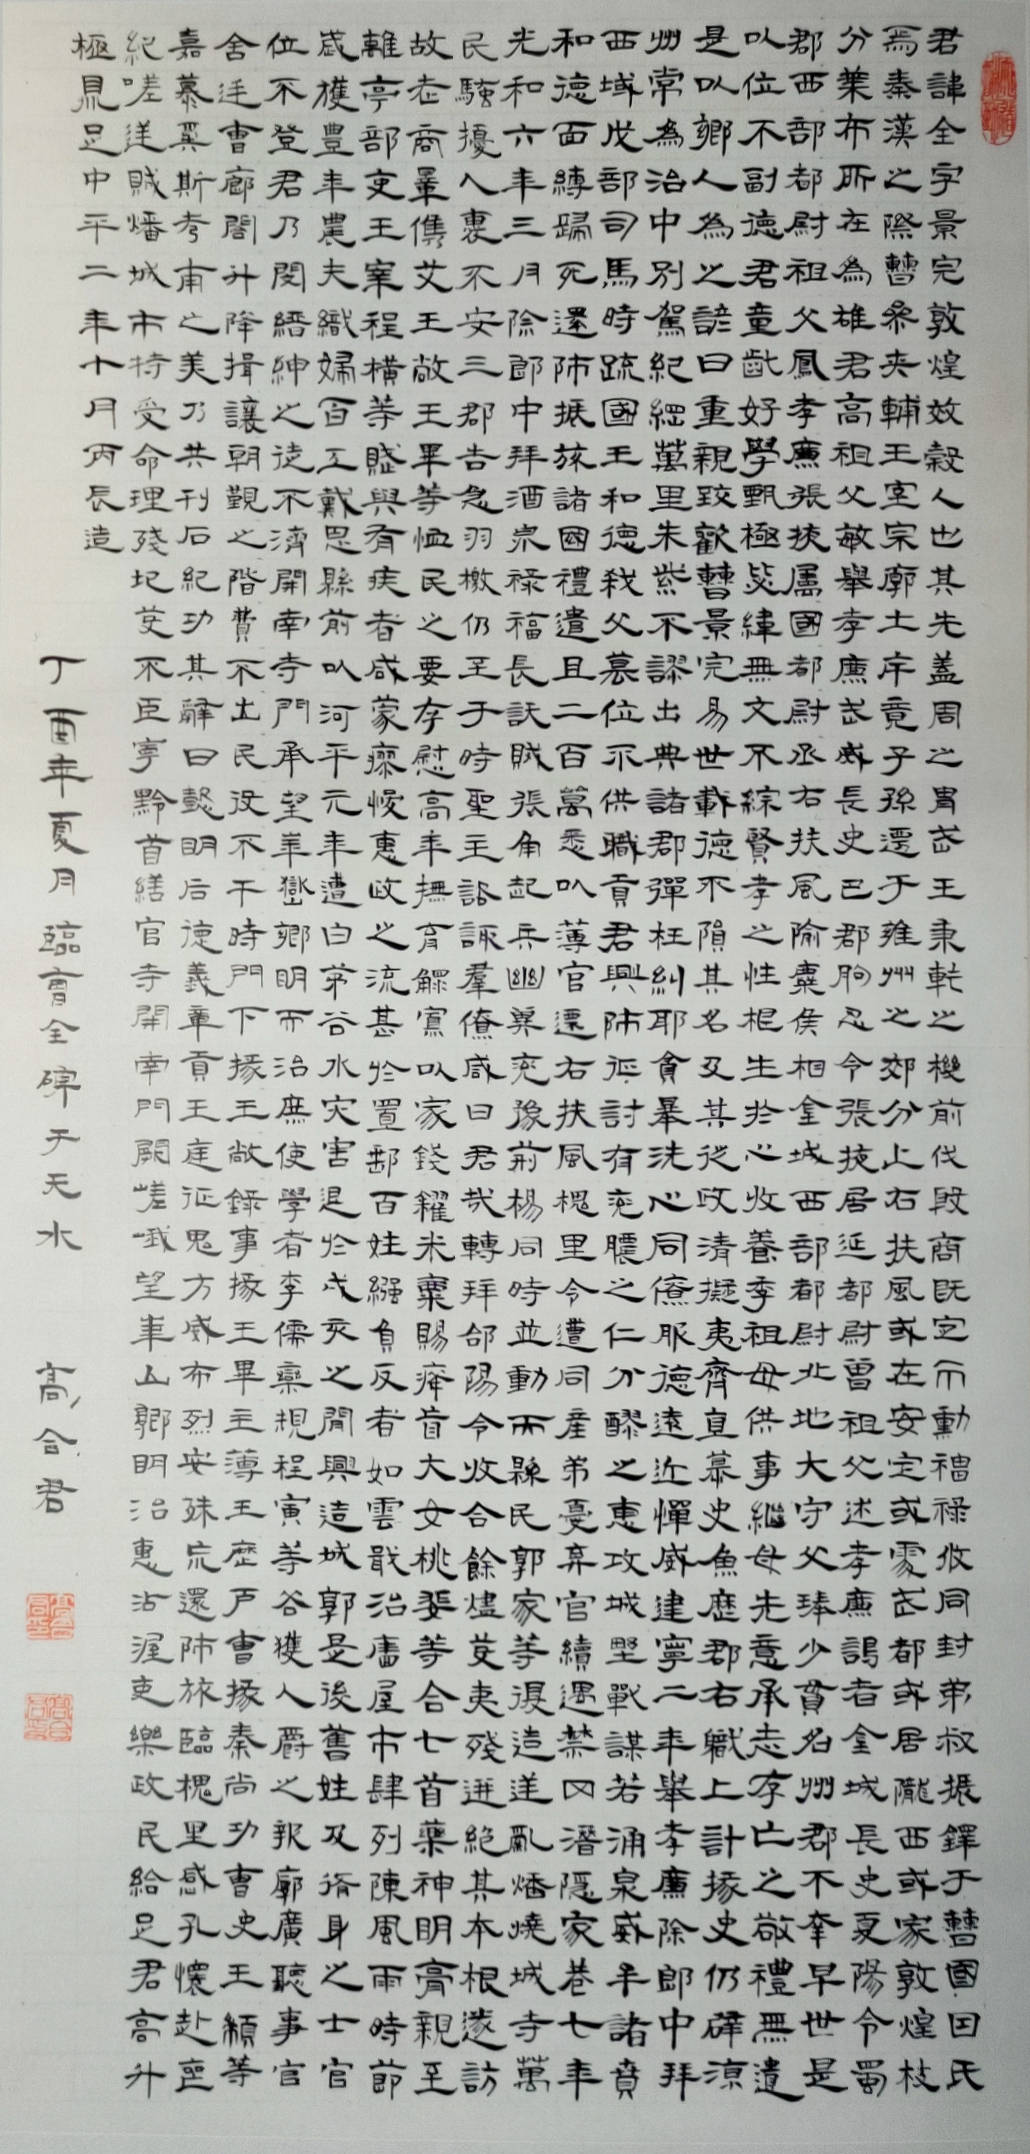 君諱全字景完敦煌效穀人也其先蓋周之冑武王秉乾之機前伐殷商既定爾勳福祿攸同封弟叔振鐸于曹國因氏
焉秦漢之際曹參夾輔王室宗廓土斥竟子孫遷于雍州之郊分止右扶風或在安定或處武都或居隴西或家敦煌枝
分葉布所在為雄君高祖父敏舉孝廉武威長史巴郡朐忍令張掖居延都尉曾祖父述孝廉謁者金城長史夏陽令蜀
郡西部都尉祖父鳳孝廉張掖屬國都尉丞右扶風隃麋侯相金城西部都尉北地大守父琫少貫名州郡不幸早世是
以位不副德君童齔好學甄極毖緯無文不綜賢孝之性根生於心收養季祖母供事繼母先意承志存亡之敬禮無遺
是以鄉人為之諺曰重親致歡曹景完易世載德不隕其名及其從政清擬夷齊直慕史魚歷郡右職上計掾史仍辟涼
州常為治中別駕紀綱萬里朱紫不謬出典諸郡彈枉糾邪貪暴洗心同僚服德遠近憚威建寧二年舉孝廉除郎中拜
西域戊部司馬時疏國王和德弒父篡位不供職貢君興師征討有兗膿之仁分醪之惠攻城野戰謀若涌泉威牟諸賁
和德面縛歸死還師振旅諸國禮遺且二百萬悉以薄官遷右扶風槐里令遭同產弟憂棄官續遇禁网潛隱家巷七年
光和六年三月除郎中拜酒泉祿福長訞賊張角起兵幽冀兗豫荊楊同時並動而縣民郭家等復造逆亂燔燒城寺萬
民騷擾人裹不安三郡告急羽檄仍至于時聖主諮諏羣僚咸曰君哉轉拜郃陽令收合餘燼芟夷殘迸絕其本根遂訪
故老商量儁艾王敞王畢等恤民之要存慰高年撫育鰥寡以家錢糴米粟賜癃盲大女桃婓等合七首藥神明膏親至
離亭部吏王宰程橫等賦與有疾者咸蒙瘳悛惠政之流甚於置郵百姓繦負反者如雲戢治廧屋市肆列陳風雨時節
歲獲豐年農夫織婦百工戴恩縣前以河平元年遭白茅谷水災害退於戊亥之間興造城郭是後舊姓及脩身之士官
位不登君乃閔縉紳之徒不濟開南寺門承望華嶽鄉明而治庶使學者李儒欒規程寅等各獲人爵之報廓廣聽事官
舍廷曹廊閣升降揖讓朝覲之階費不出民役不干時門下掾王敞錄事掾王畢主薄王歷戶曹掾秦尚功曹史王顓等
嘉慕奚斯考甫之美乃共刊石紀功其辭曰懿明后德義章貢王庭征鬼方威布烈安殊荒還師旅臨槐里感孔懷赴喪
紀嗟逆賊燔城市特受命理殘圮芟不臣寧黔首繕官寺開南門闕嵯峨望華山鄉明治惠沾渥吏樂政民給足君高升
極鼎足中平二年十月丙辰造
丁酉年夏月臨曹全碑于天水 高合君